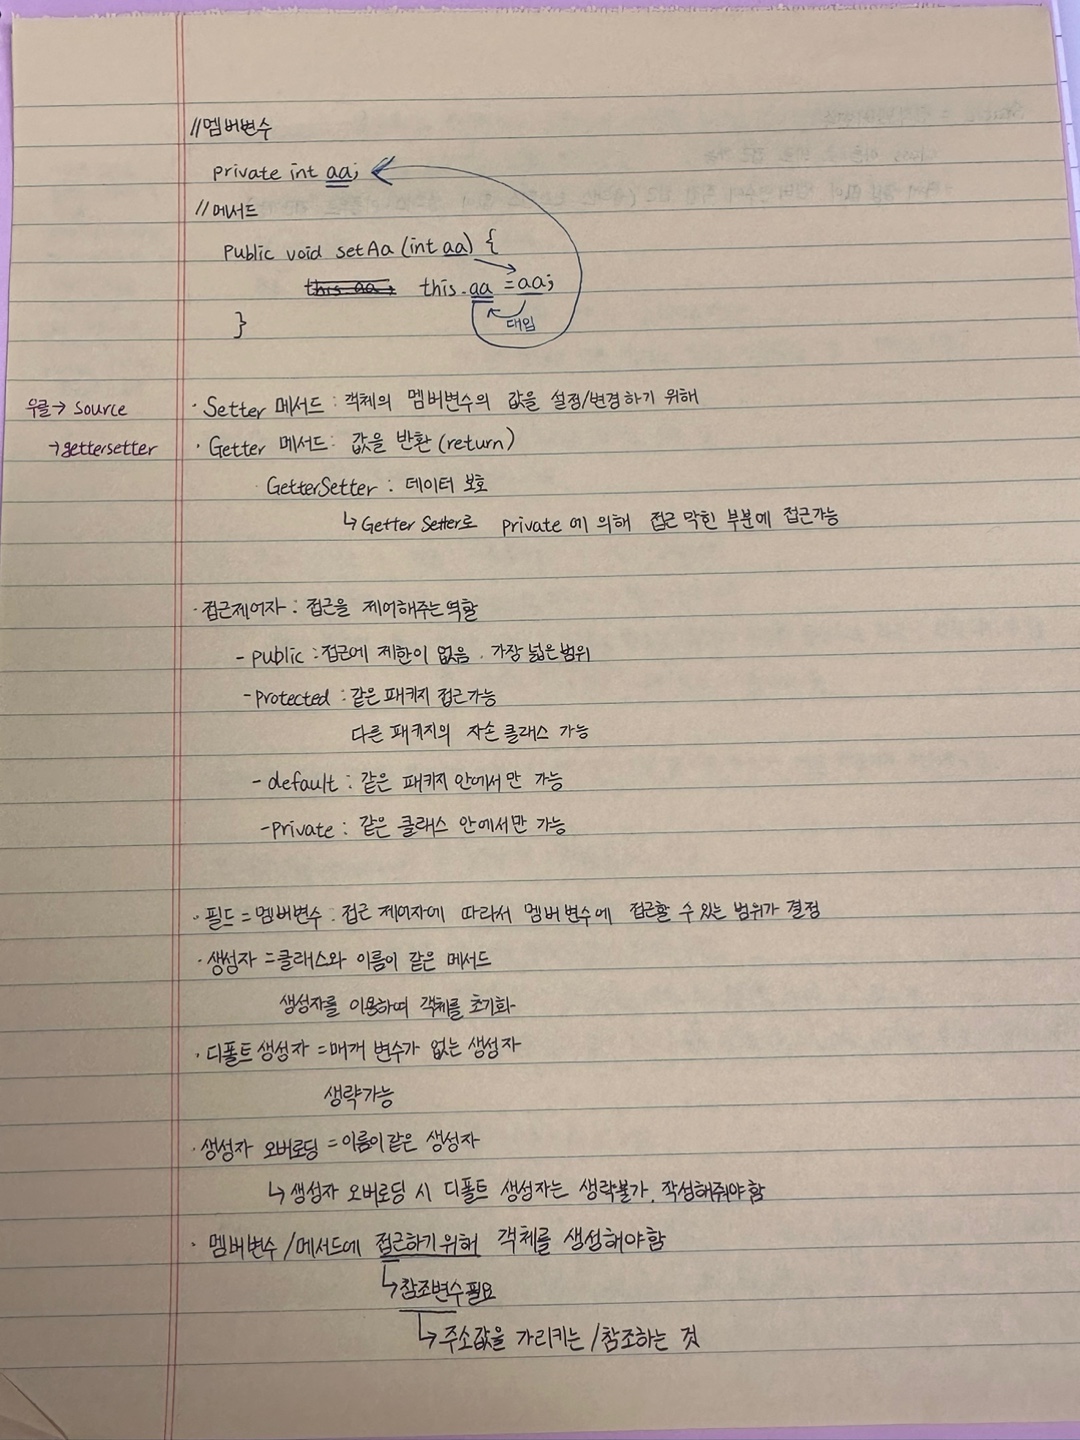 //멤버변수
private int aa;
//메서드
public void setAa (int aa) {
this.aa = aa;
대입
}
우클→ source
→gettersetter
· Setter 메서드 : 객체의 멤버변수의 값을 설정/변경하기 위해
· Getter 메서드 : 값을 반환 (return)
GetterSetter : 데이터 보호
↳ Getter Setter로 private에 의해 접근 막힌 부분에 접근가능
· 접근제어자 : 접근을 제어해주는 역할
- public : 접근에 제한이 없음. 가장 넓은 범위
- protected : 같은 패키지 접근가능
다른 패키지의 자손 클래스 가능
- default : 같은 패키지 안에서만 가능
- private : 같은 클래스 안에서만 가능
· 필드 = 멤버변수 : 접근 제어자에 따라서 멤버변수에 접근할 수 있는 범위가 결정
· 생성자 = 클래스와 이름이 같은 메서드
생성자를 이용하여 객체를 초기화
· 디폴트 생성자 = 매개 변수가 없는 생성자
생략가능
· 생성자 오버로딩 = 이름이 같은 생성자
↳ 생성자 오버로딩 시 디폴트 생성자는 생략불가, 작성해줘야함
· 멤버변수/메서드에 접근하기 위해 객체를 생성해야함
↳ 참조변수 필요
↳ 주소값을 가리키는/참조하는 것